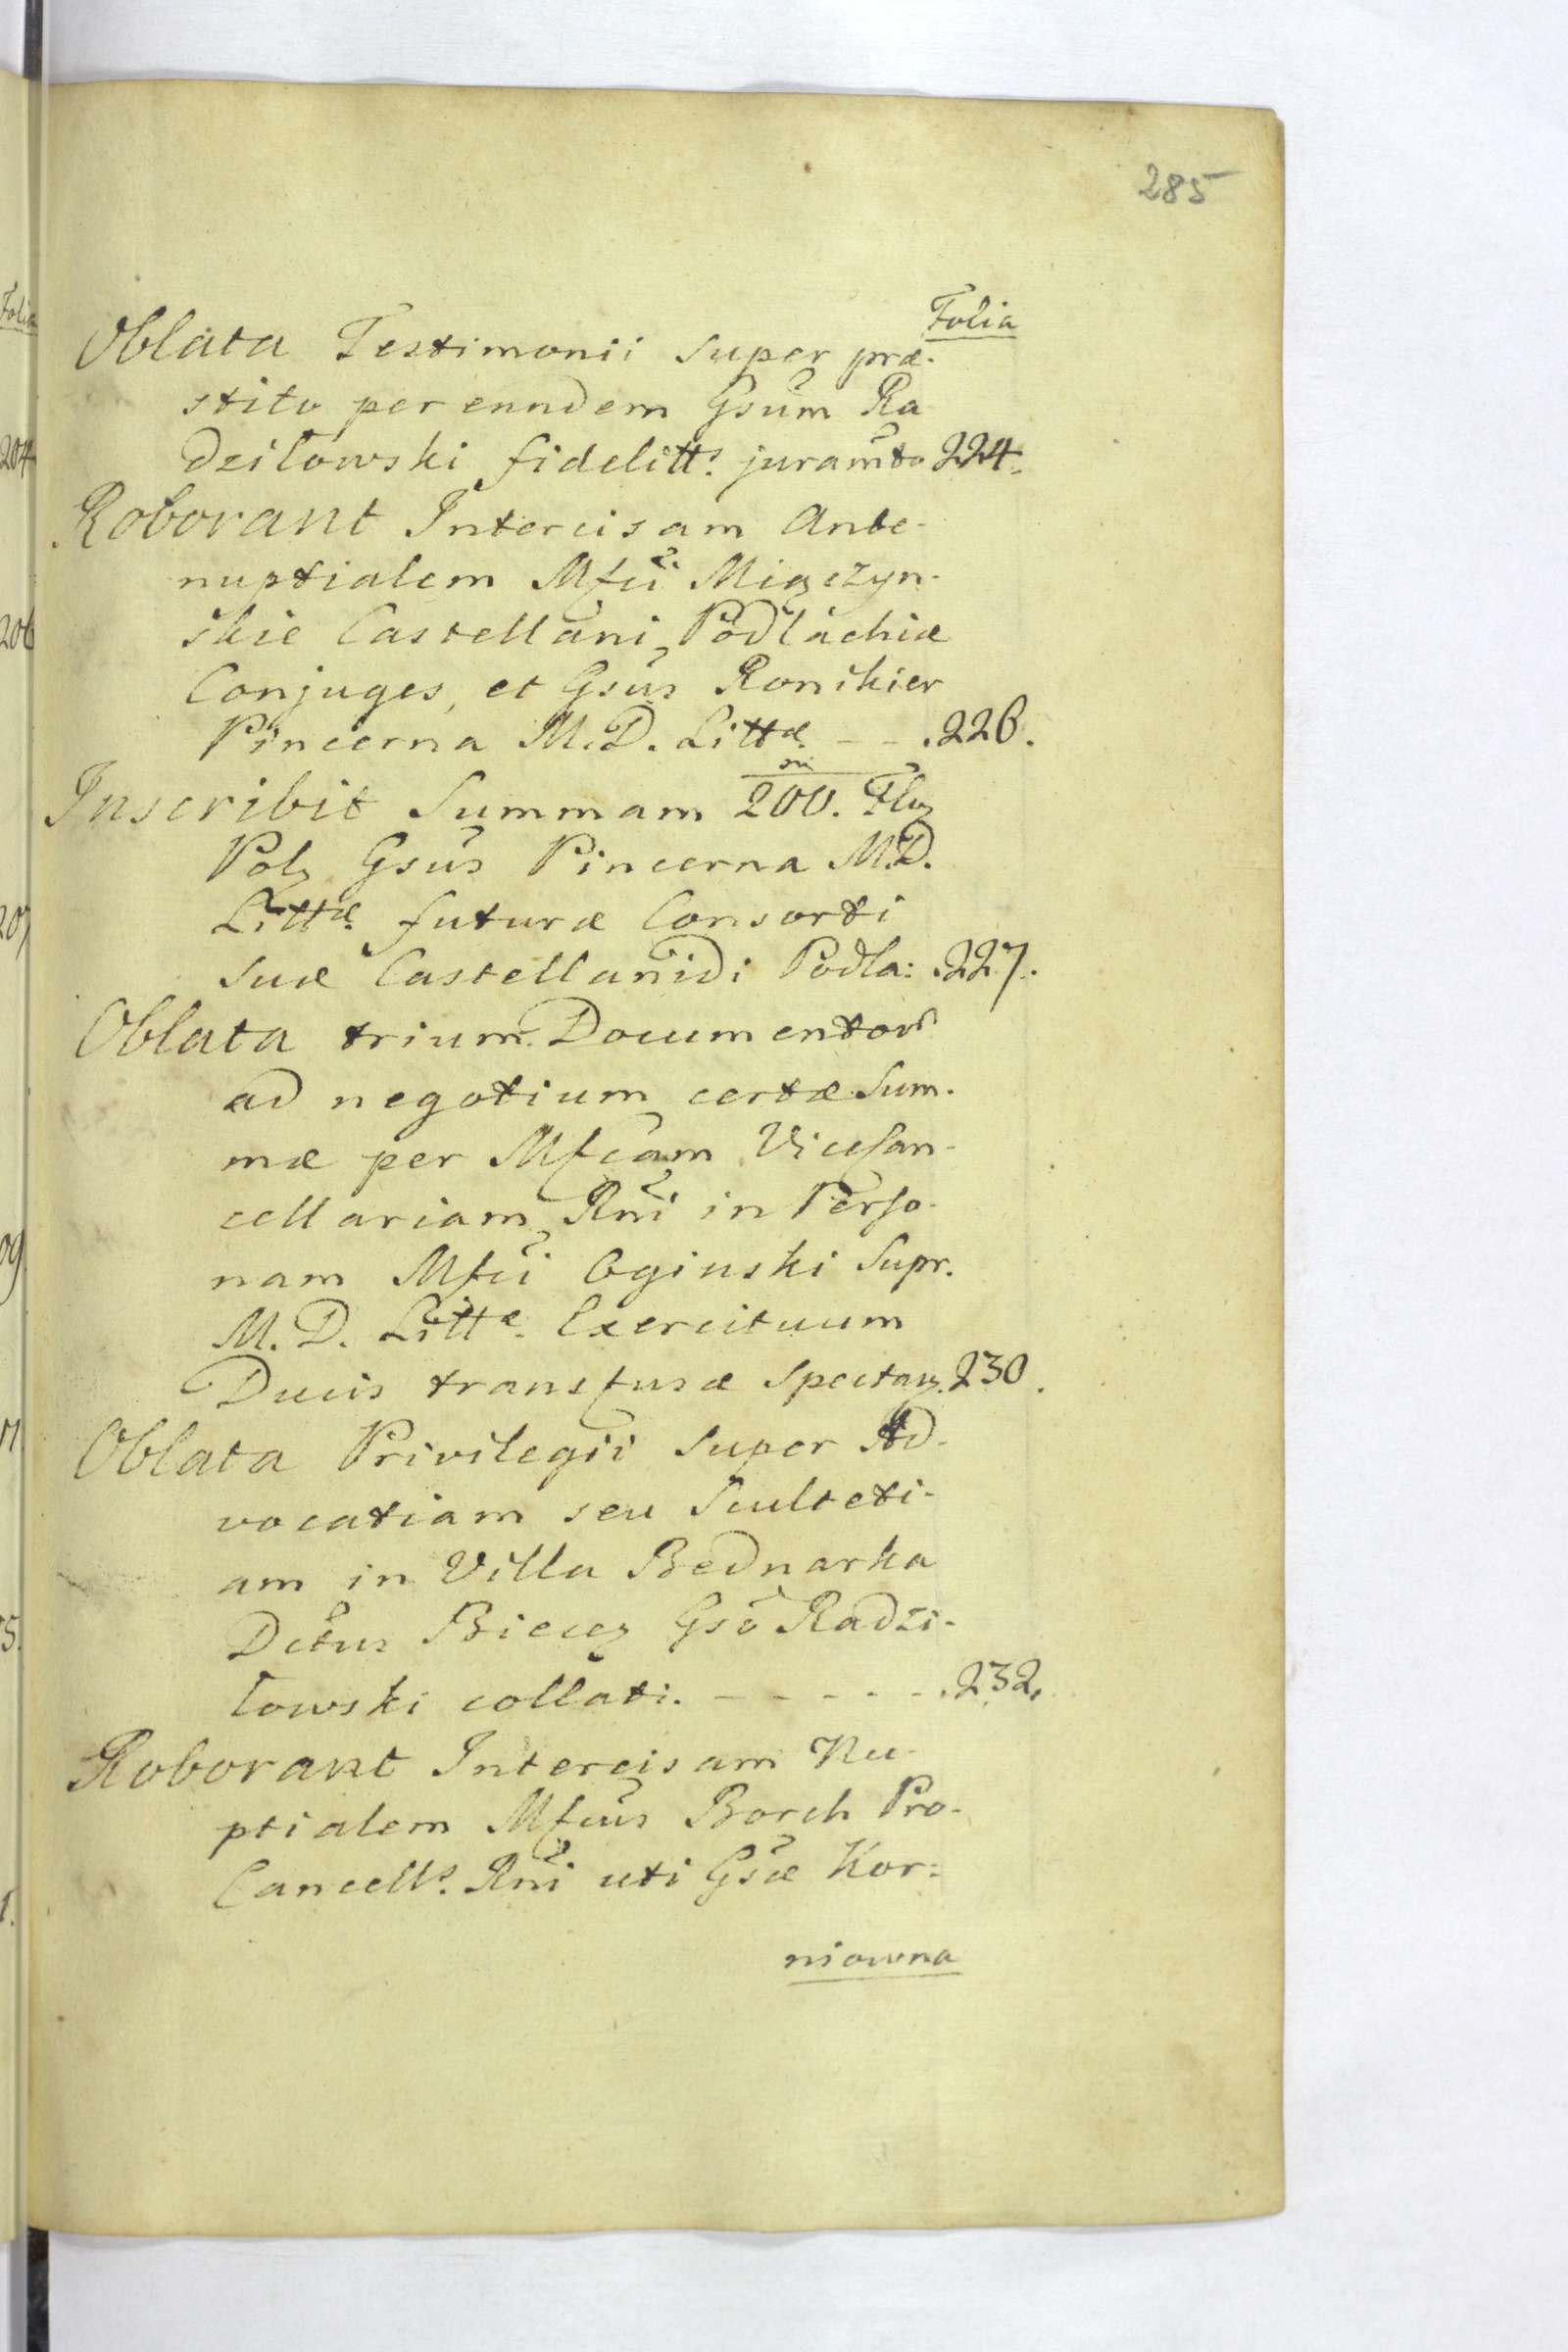 285
Folia
Oblata Testimonii super præ-
stito per eundem Gsum Ra
dziłowski fidelitts. juramto 224.
Roborant Intercisam Ante-
nuptialem Mfci Miączyn-
skie Castellani Podlachiæ
Conjuges, et Gsus Ronikier
Pincerna M.D. Littæ. - - .226.
Inscribit Summam 200. m Flor
Pol Gsus Pincerna M.D.
Littæ. futuræ Consorti
suæ Castellanidi Podla: .227.
Oblata trium Documentor
ad negotium certæ Sum-
mæ per Mfcam Vicecan-
cellariam Rni in Perso-
nam Mfci Oginski Supr.
M. D. Litte. Exercituum
Ducis transfusæ spectan. 230.
Oblata Privilegii super Ad-
vocatiam seu Sculteti-
am in Villa Bednarka
Dctus Biecen Gso Radzi-
łowski collati. - - - - - .232.
Roborant Intercisam Nu-
ptialem Mfcus Borch Pro-
Cancells. Rni uti Gsæ Kor=
niowna
Folia
204
206
207
09
11
5.
1.